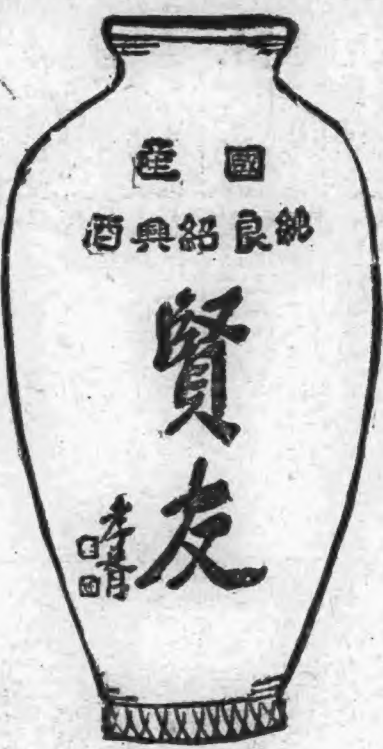 國產
純良紹興酒
賢友
孝胥